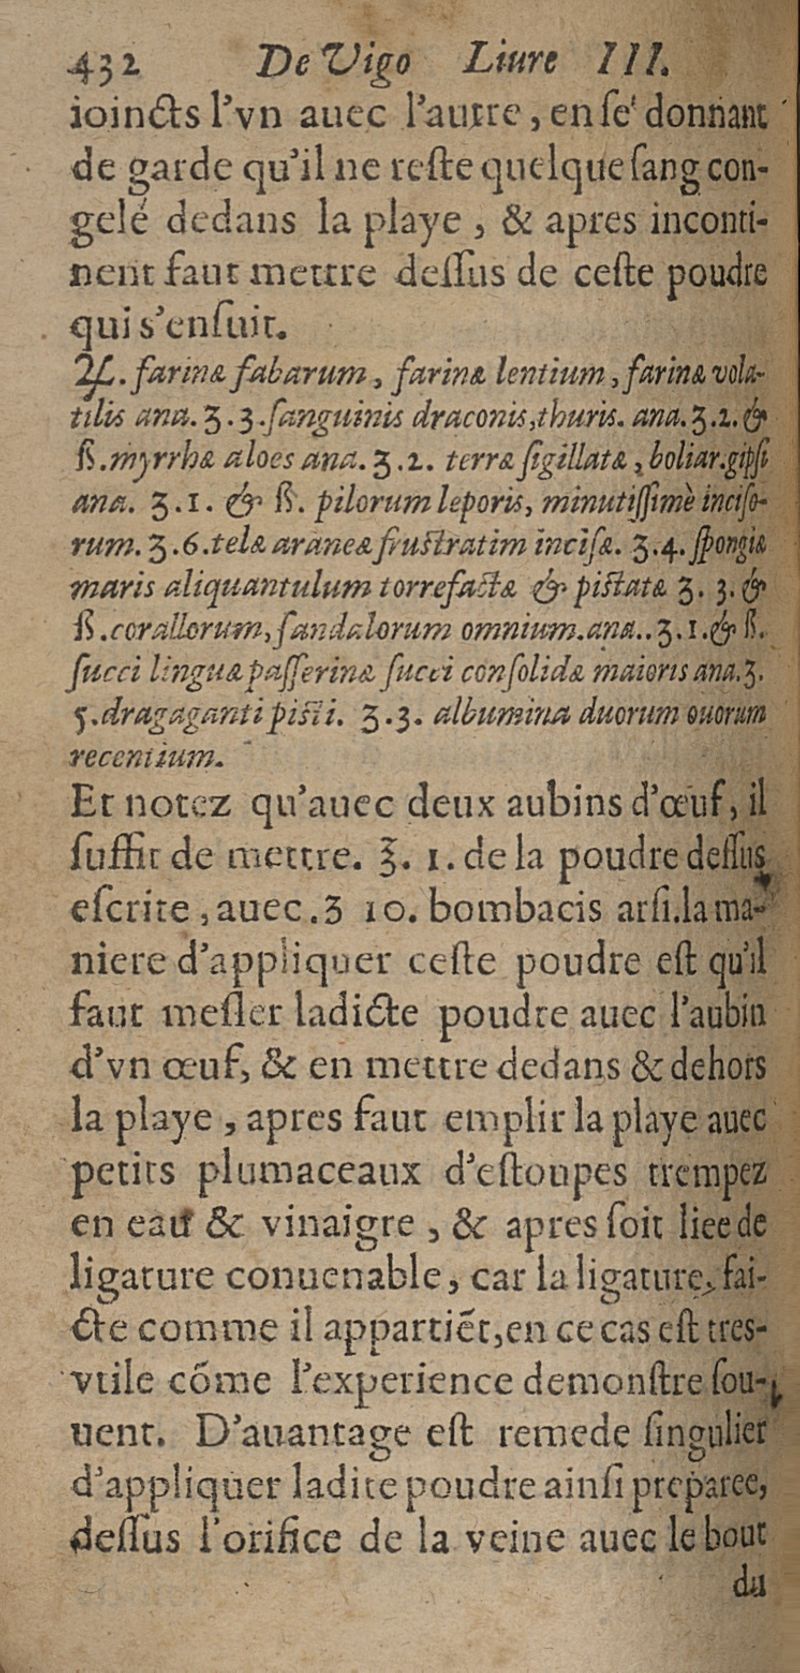 432 De Vigo Liure III.
ioincts l'vn auec l'autre, en se donnant
de garde qu'il ne reſte quelque ſang con-
gelé dedans la playe, & apres inconti-
nent faut mettre deſſus de ceſte poudre
qui s'enſuit.
♃. farinæ fabarum, farinæ lentium, farinæ vola-
tilis ana. ʒ. 3. ſanguinis draconis, thuris. ana. ʒ.2. &
ß. myrrhæ aloes ana. ʒ.2. terræ ſigillatæ, boliar. gipſi
ana. ʒ.1. & ß. pilorum leporis, minutiſſimè inciſo-
rum. ʒ.6. telæ araneæ fruſtratim inciſæ. ʒ.4. ſpongiæ
maris aliquantulum torrefactæ & piſtatæ ʒ. 3. &
ß. corallorum, ſandalorum omnium. ana.. ʒ.1. & ß.
ſucci linguæ paſſerinæ ſucci conſolidæ maioris ana. ʒ.
5. dragaganti piſti. ʒ.3. albumina duorum ouorum
recentium.
Et notez qu'auec deux aubins d'œuf, il
ſuffit de mettre. ℥. 1. de la poudre deſſus
eſcrite, auec. ʒ 10. bombacis arſi. la ma-
niere d'appliquer ceſte poudre eſt qu'il
faut meſler ladicte poudre auec l'aubin
d'vn œuf, & en mettre dedans & dehors
la playe, apres faut emplir la playe auec
petits plumaceaux d'eſtoupes trempez
en eau & vinaigre, & apres ſoit liee de
ligature conuenable, car la ligature, fai-
cte comme il appartiẽt, en ce cas eſt tres-
vtile cõme l'experience demonſtre ſou-
uent. D'auantage eſt remede ſingulier
d'appliquer ladite poudre ainſi preparee,
deſſus l'orifice de la veine auec le bout
du